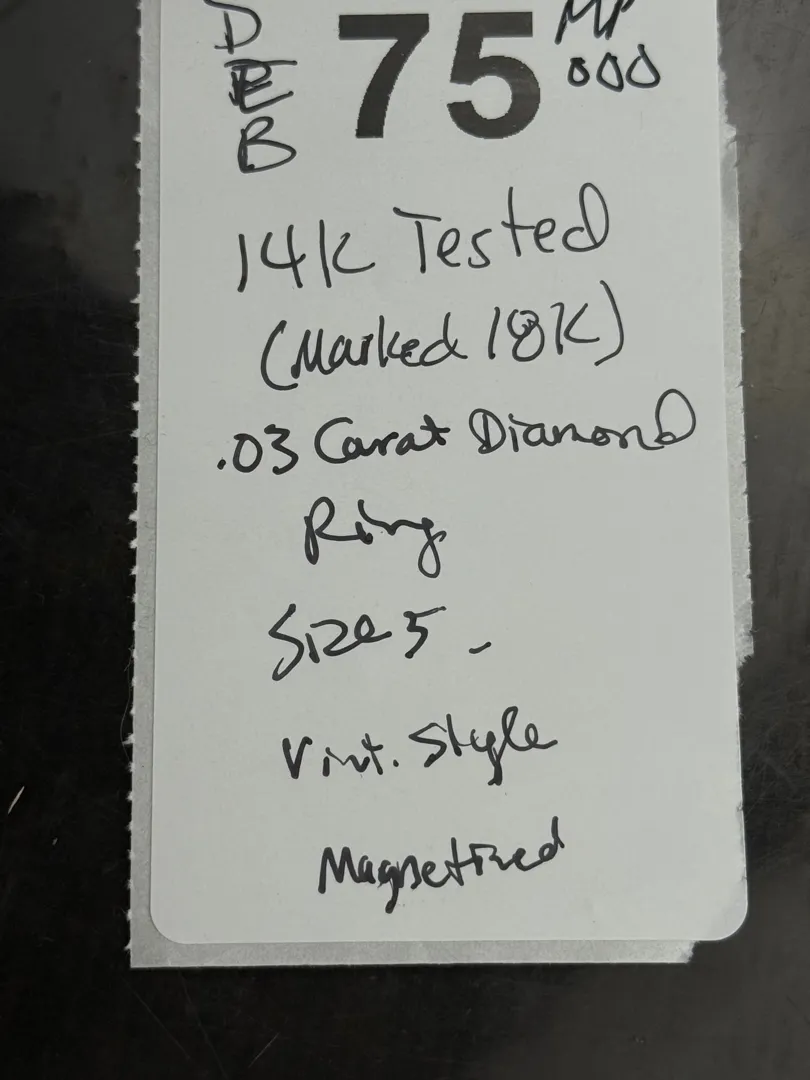 D
E
B
75
MP
000
14K Tested
(Marked 18K)
.03 Carat Diamond
Ring
Size 5 -
Vint. Style
Magnetized